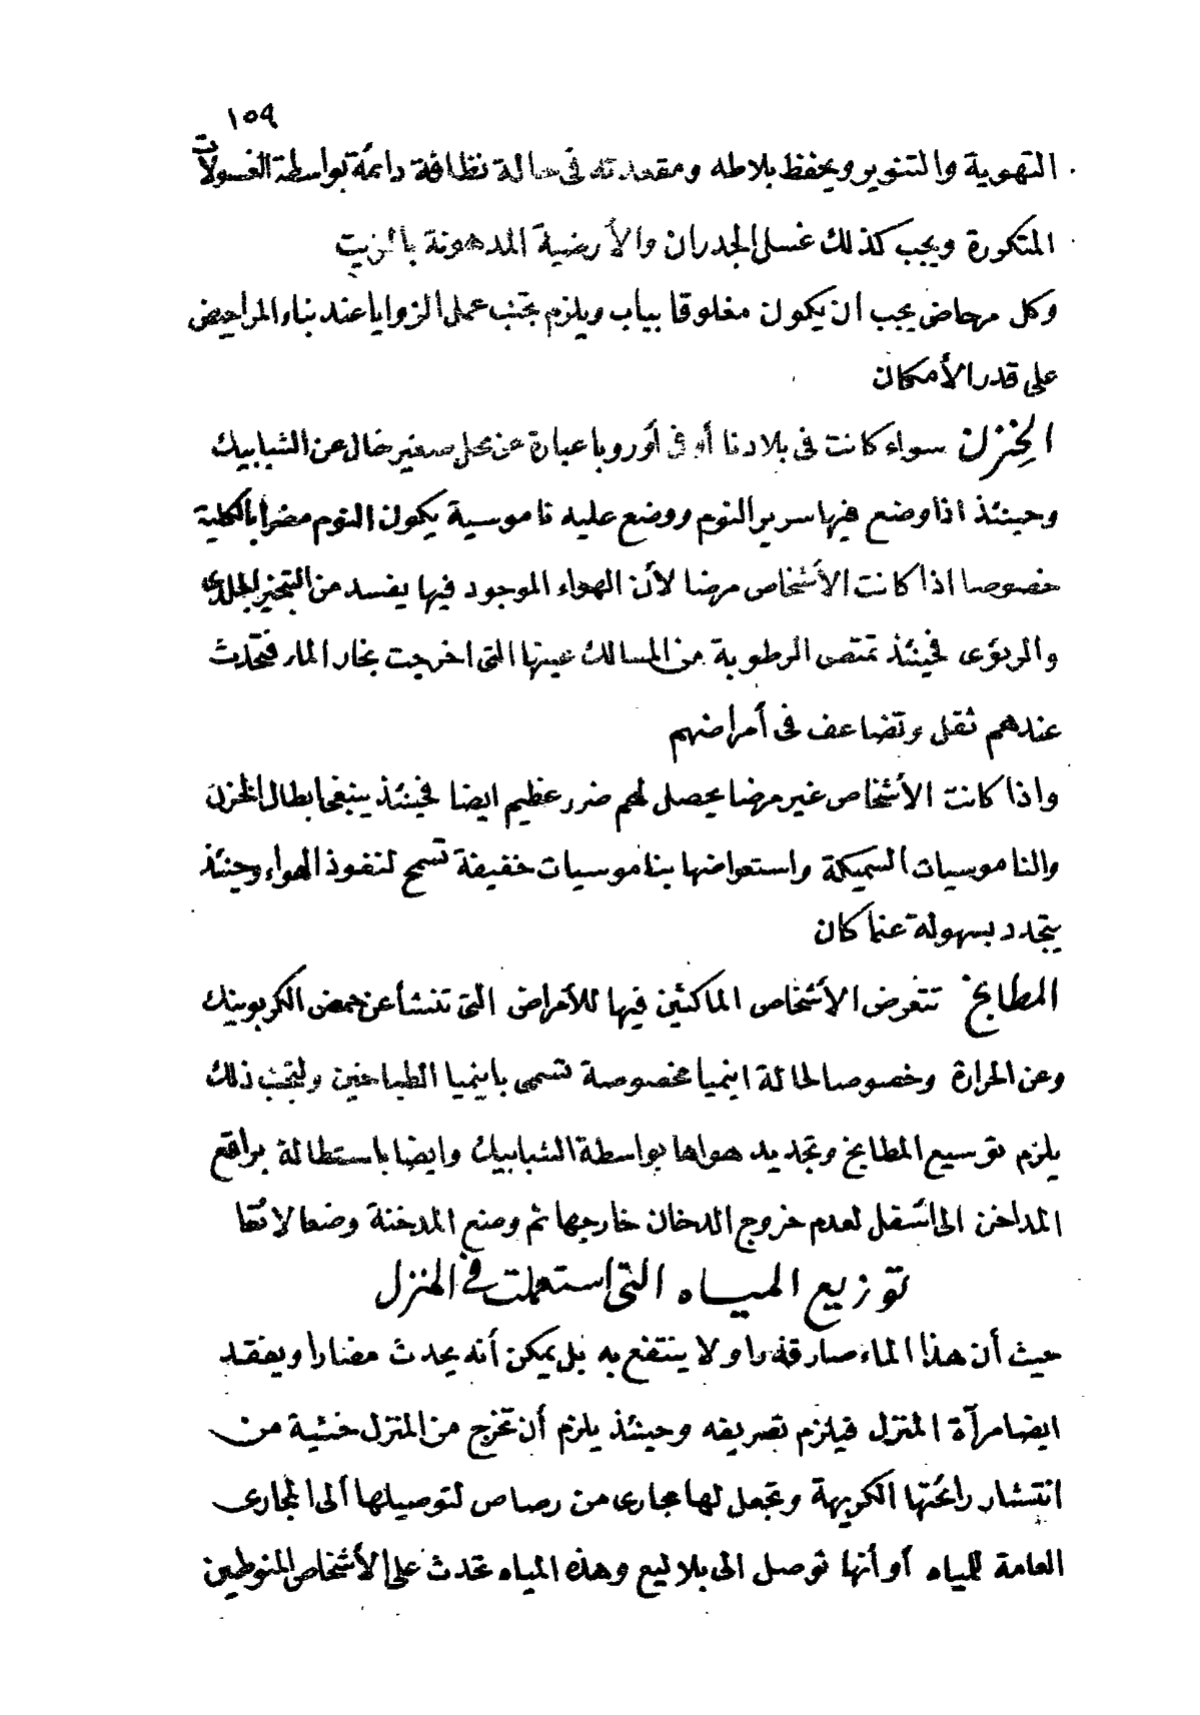 ١٥٩
التهوية والتنوير ويحفظ بلاطه ومقعدته فى حالة نظافة دائمة بواسطة الغسولات
المتكورة ويجب كذلك غسل الجدران والأرضية المدهونة بالزيت
وكل مرحاض يجب ان يكون مغلوقا بباب ويلزم تجنب عمل الزوايا عند بناء المراحيض
على قدر الأمكان
الخزن سواء كانت فى بلادنا أو فى أوروبا عبارة عن محل صغير خال عن الشبابيك
وحينئذ اذا وضع فيها سرير النوم ووضع عليه ناموسية يكون النوم مضرا بالكلية
خصوصا اذا كانت الأشخاص مرضا لأن الهواء الموجود فيها يفسد من التبخير الجلدى
والرئوى فحينئذ تمتص الرطوبة من المسالك عينها التى اخرجت بخار الماء فتحدث
عندهم ثقل وتضاعف فى أمراضهم
واذا كانت الأشخاص غير مرضا يحصل لهم ضرر عظيم ايضا فحينئذ ينبغى ابطال الخزن
والناموسيات السميكة واستعواضها بناموسيات خفيفة تسمح لنفوذ الهواء وحينئذ
يتجدد بسهولة عنما كان
المطابخ تتعرض الأشخاص الماكثين فيها للأمراض التى تنشأ عن حمض الكربونيك
وعن الحرارة وخصوصا لحالة اينميا مخصوصة تسمى باينميا الطباخين ولتجنب ذلك
يلزم توسيع المطابخ وتجديد هواها بواسطة الشبابيك وايضا باستطالة براقع
المداخن الى اسفل لعدم خروج الدخان خارجها ثم وضع المدخنة وضعا لائقا
توزيع المياه التى استعملت فى المنزل
حيث أن هذا الماء صار قذرا ولا ينتفع به بل يمكن أنه يحدث مضارا ويفقد
ايضا مرآة المنزل فيلزم تصريفه وحينئذ يلزم أن تخرج من المنزل خشية من
انتشار رائحتها الكريهة وتجعل لها مجارى من رصاص لتوصيلها ألى المجارى
العامة للمياه أو أنها توصل الى بلاليع وهذه المياه تحدث على الأشخاص المنوطين